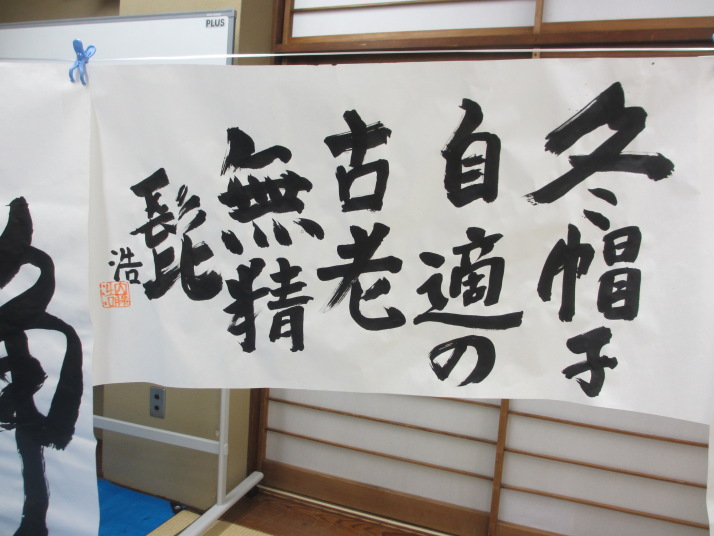 冬帽子
自適の
古老
無精
髭
浩
PLUS